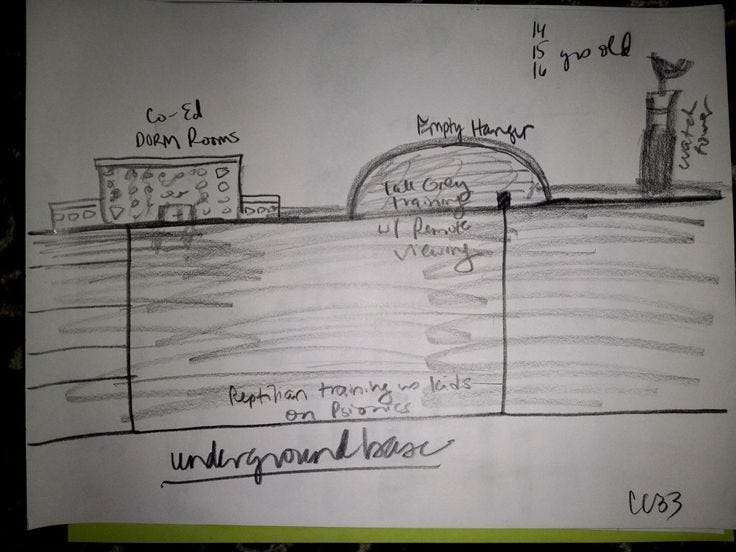 14
15
16 yrs old
Co-Ed
DORM ROOMS
Empty Hangur
Watch
Tower
Tall Grey
training
w/ Remote
Viewing
Reptilian training w/ kids
on Psionics
undergroundbase
CC33